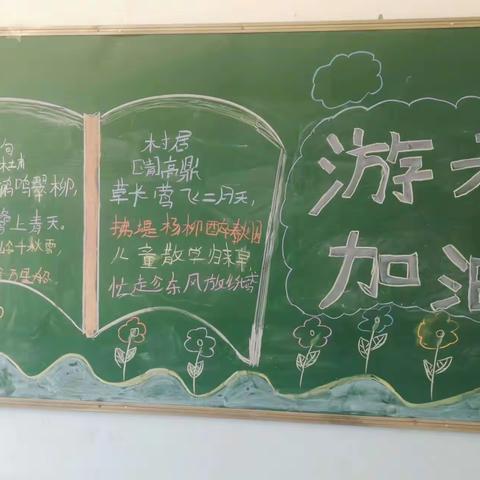 句
杜甫
鹂鸣翠柳,
鹭上青天。
岭千秋雪,
万里船
村居
[清]高鼎
草长莺飞二月天,
拂堤杨柳醉春烟
儿童散学归来早,
忙趁东风放纸鸢
游
加油